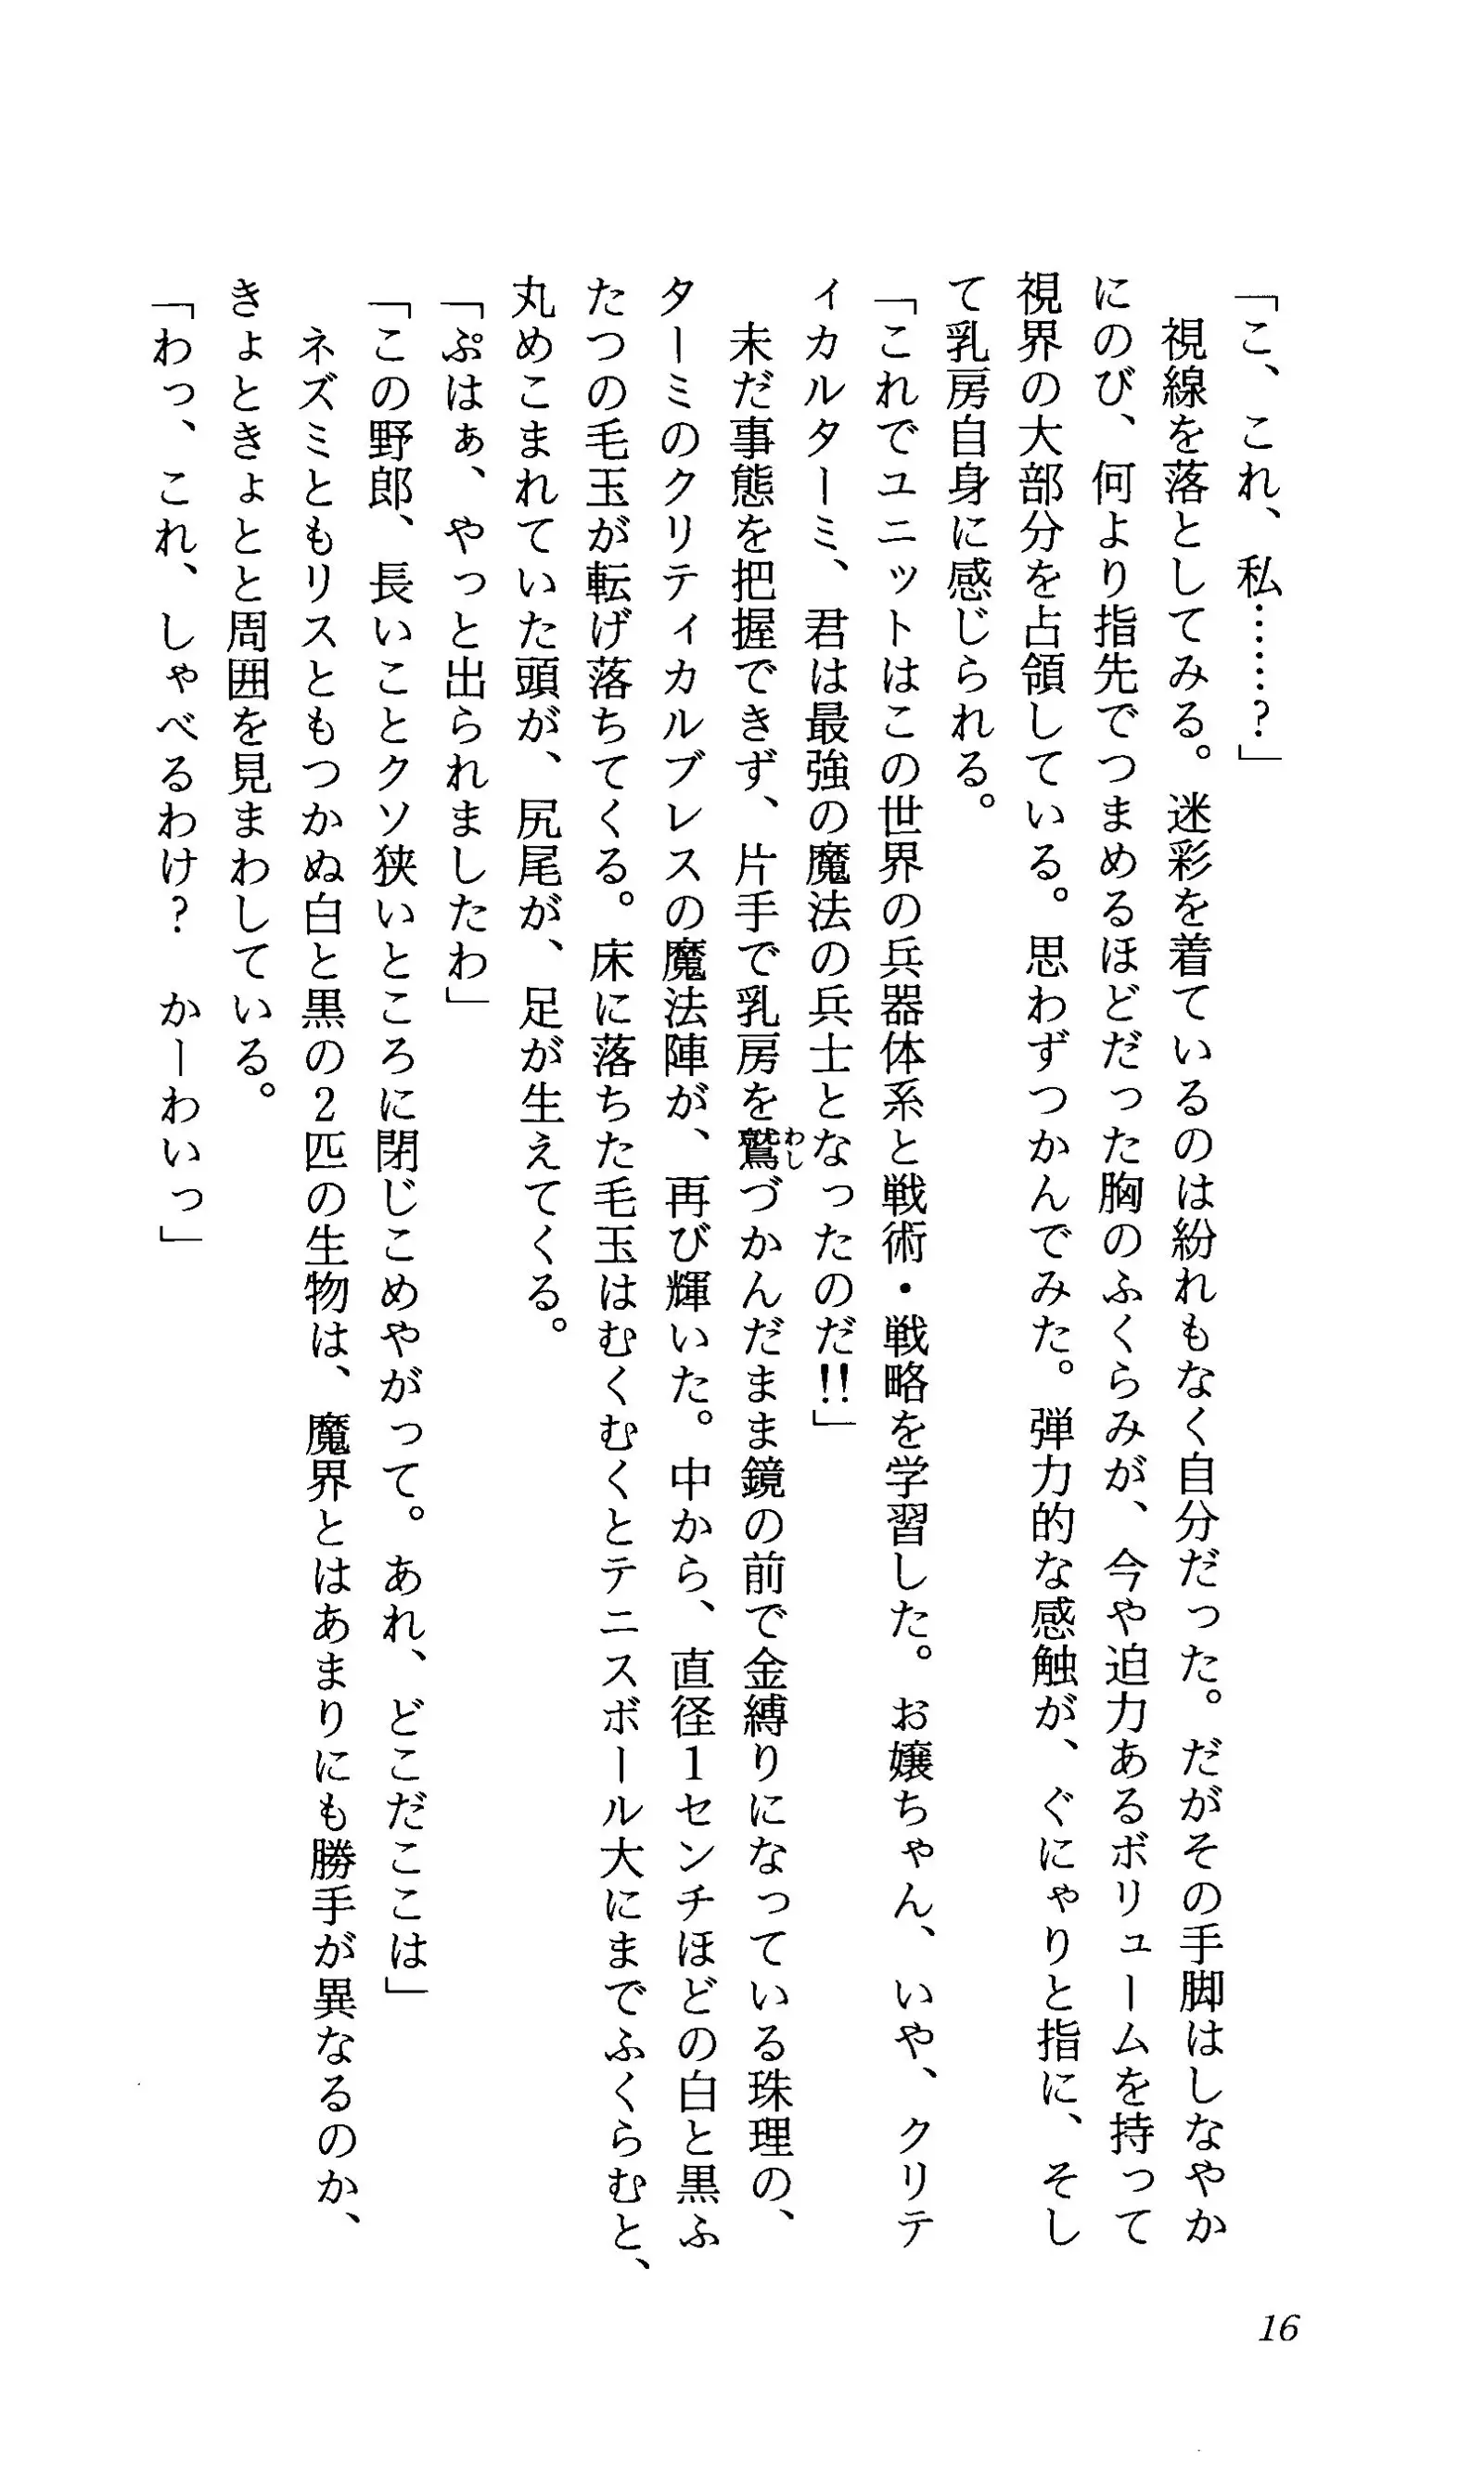 「こ、これ、私……？」
　視線を落としてみる。迷彩を着ているのは紛れもなく自分だった。だがその手脚はしなやか
にのび、何より指先でつまめるほどだった胸のふくらみが、今や迫力あるボリュームを持って
視界の大部分を占領している。思わずつかんでみた。弾力的な感触が、ぐにゃりと指に、そし
て乳房自身に感じられる。
「これでユニットはこの世界の兵器体系と戦術・戦略を学習した。お嬢ちゃん、いや、クリテ
ィカルターミ、君は最強の魔法の兵士となったのだ!!」
　未だ事態を把握できず、片手で乳房を鷲づかんだまま鏡の前で金縛りになっている珠理の、
わし
ターミのクリティカルブレスの魔法陣が、再び輝いた。中から、直径１センチほどの白と黒ふ
たつの毛玉が転げ落ちてくる。床に落ちた毛玉はむくむくとテニスボール大にまでふくらむと、
丸めこまれていた頭が、尻尾が、足が生えてくる。
「ぷはぁ、やっと出られましたわ」
「この野郎、長いことクソ狭いところに閉じこめやがって。あれ、どこだここは」
　ネズミともリスともつかぬ白と黒の２匹の生物は、魔界とはあまりにも勝手が異なるのか、
きょときょとと周囲を見まわしている。
「わっ、これ、しゃべるわけ？　かーわいっ」
16